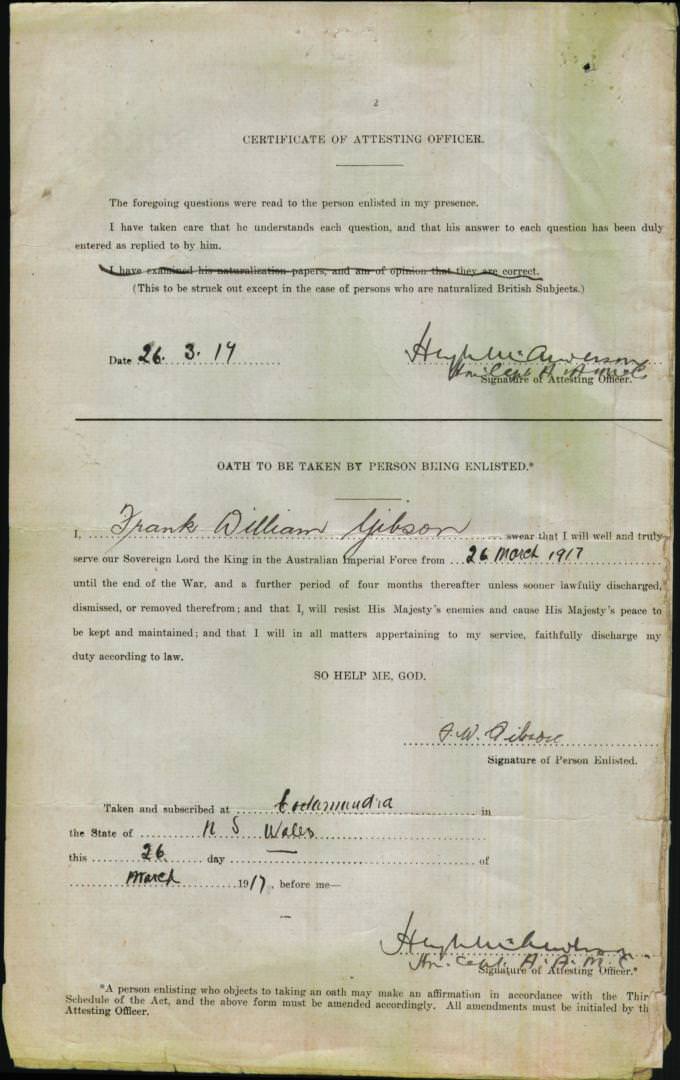 2
CERTIFICATE OF ATTESTING OFFICER.
The foregoing questions were read to the person enlisted in my presence.
I have taken care that he understands each question, and that his answer to each question has been duly
entered as replied to by him.
I have examined his naturalization papers, and am of opinion that they are correct.
(This to be struck out except in the case of persons who are naturalized British Subjects.)
Date 26. 3. 17
Hugh
Hon. Capt. A.A.M.C
Signature of Attesting Officer.
OATH TO BE TAKEN BY PERSON BEING ENLISTED.*
I, Frank William Gibson swear that I will well and truly
serve our Sovereign Lord the King in the Australian Imperial Force from 26 March 1917
until the end of the War, and a further period of four months thereafter unless sooner lawfully discharged,
dismissed, or removed therefrom; and that I will resist His Majesty's enemies and cause His Majesty's peace to
be kept and maintained; and that I will in all matters appertaining to my service, faithfully discharge my
duty according to law.
SO HELP ME, GOD.
F.W. Gibson
Signature of Person Enlisted.
Taken and subscribed at Cootamundra in
the State of N S Wales
this 26 day of
March 1917, before me—
Hugh
Hon. Capt. A.A.M.C
Signature of Attesting Officer.*
*A person enlisting who objects to taking an oath may make an affirmation in accordance with the Thir
Schedule of the Act, and the above form must be amended accordingly. All amendments must be initialed by th
Attesting Officer.